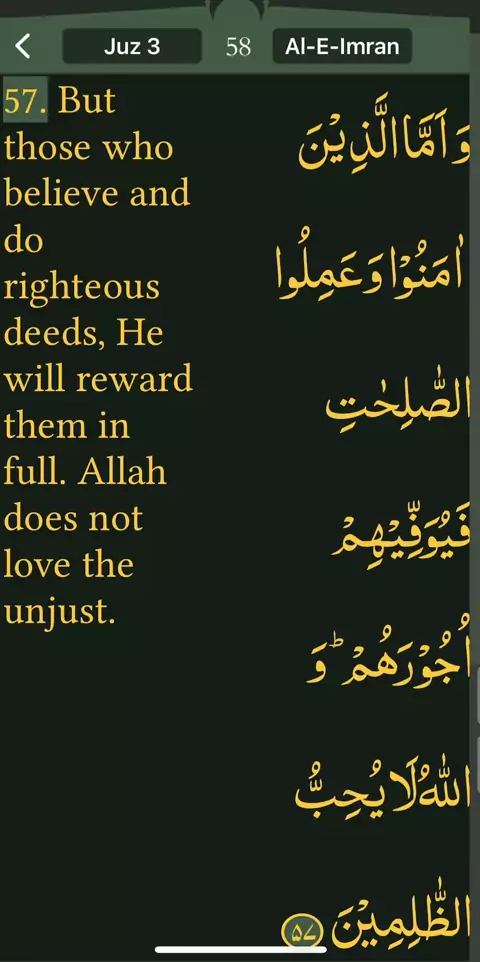 Juz 3
58
Al-E-Imran
57. But
those who
believe and
do
righteous
deeds, He
will reward
them in
full. Allah
does not
love the
unjust.
وَ اَمَّا الَّذِیْنَ
اٰمَنُوْا وَ عَمِلُوا
الصّٰلِحٰتِ
فَیُوَفِّیْهِمْ
اُجُوْرَهُمْؕ وَ
اللّٰهُ لَا یُحِبُّ
الظّٰلِمِیْنَ ۵۷